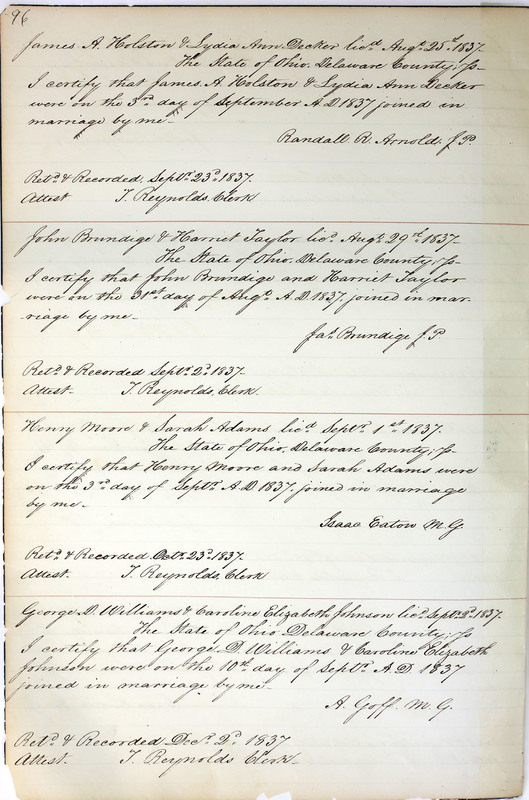 96
James A. Holston & Lydia Ann Decker licd Augt. 25th 1837.
The State of Ohio, Delaware County, Ss-
I certify that James A. Holston & Lydia Ann Decker
were on the 3rd day of September A.D. 1837 joined in
marriage by me-
Randall R. Arnold, J.P.
Retd. & Recorded, Septr. 23d. 1837.
Attest T. Reynolds, Clerk
John Brundige & Harriet Taylor licd. Augt. 29th. 1837-
The State of Ohio, Delaware County, Ss-
I certify that John Brundige and Harriet Taylor
were on the 31st day of Augt. A.D. 1837. joined in mar-
riage by me-
Jas. Brundige J.P.
Retd. & Recorded Septr. 2d. 1837-
Attest. T. Reynolds, Clerk.
Henry Moore & Sarah Adams licd Septr. 1st. 1837.
The State of Ohio, Delaware County, Ss-
I certify that Henry Moore and Sarah Adams were
on the 3rd day of Septr. A.D. 1837. joined in marriage
by me-
Isaac Eaton M.G.
Retd. & Recorded. Octr. 23d. 1837.
Attest. T. Reynolds, Clerk
George D. Williams & Caroline Elizabeth Johnson licd. Septr. 2d. 1837.
The State of Ohio Delaware County, Ss
I certify that George D. Williams & Caroline Elizabeth
Johnson were on the 10th day of Septr. A.D. 1837
joined in marriage by me-
A. Goff. M.G.
Retd. & Recorded Decr. 2d. 1837
Attest. T. Reynolds Clerk-